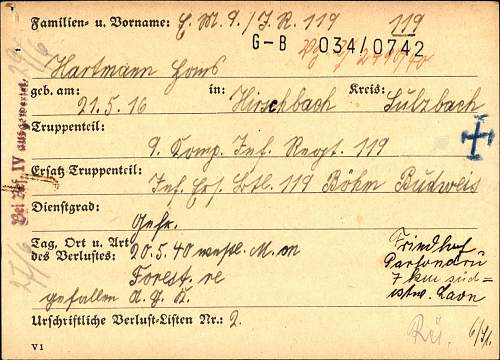 Familien- u. Vorname: E. M. 9. / J. R. 119 119
G-B 034/0742
Hartmann Hans
geb. am: 21.5.16 in: Hirschbach Kreis: Sulzbach
Truppenteil:
9. Komp. Inf. Regt. 119
Ersatz Truppenteil:
Inf. Ers. Btl. 119 Böhm Budweis
Dienstgrad:
Gefr.
Tag, Ort u. Art
des Verlustes: 20.5.40 westl. M. in
Forest. re
gefallen A. G. K.
Friedhof
Parfondru
7 km süd-
ostw. Laon
Urschriftliche Verlust-Listen Nr.: 2.
6/41.
V1
Bei Ref. IV ausgewertet
27/6